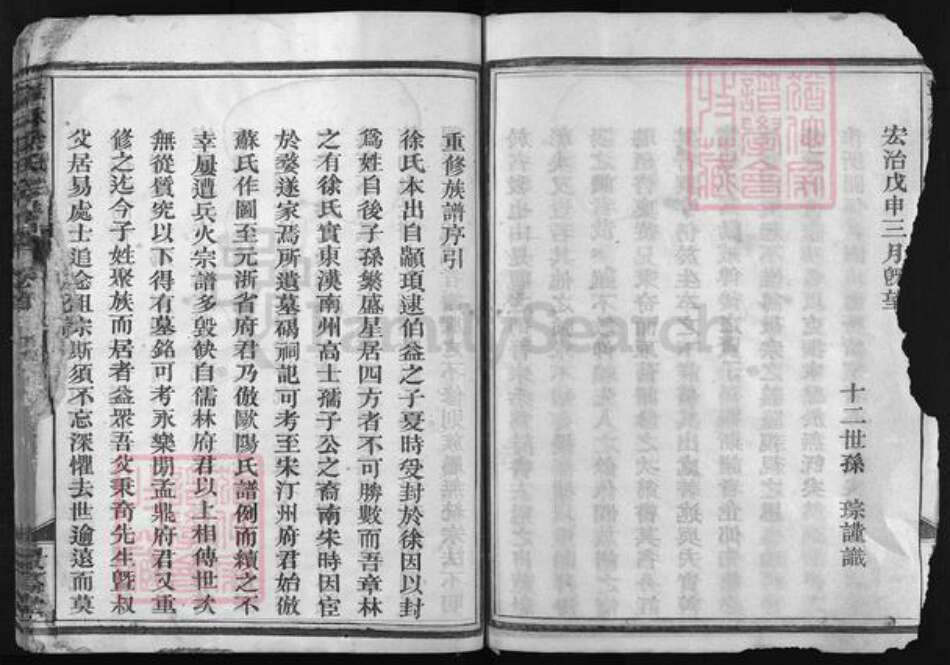 宏治戊申三月既望
十二世孫 琮謹識
重修族譜序引
徐氏本出自顓頊逮伯益之子夏時受封於徐因以封
爲姓自後子孫槃盛星居四方者不可勝數而吾章林
之有徐氏實東漢南州高士孺子公之裔南宋時因宦
於婺遂家焉所遺墓碣祠記可考至宋汀州府君始倣
蘇氏作圖至元浙省府君乃倣歐陽氏譜例而續之不
幸屢遭兵火宗譜多毀缺自儒林府君以上相傳世次
無從質究以下得有墓銘可考永樂間孟鼎府君又重
修之迄今子姓聚族而居者益眾吾父秉育先生曁叔
父居易處士追念祖宗斯須不忘深懼去世逾遠而莫
FamilySearch